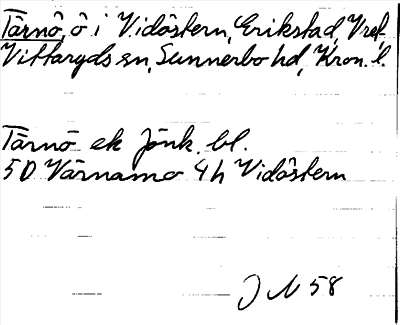 Tärnö, ö i Vidöstern, Erikstad, Vret,
Vittaryds sn, Sunnerbo hd, Kron. l.
Tärnö ek Jönk. bl.
5D Värnamo 4h Vidöstern
J N 58